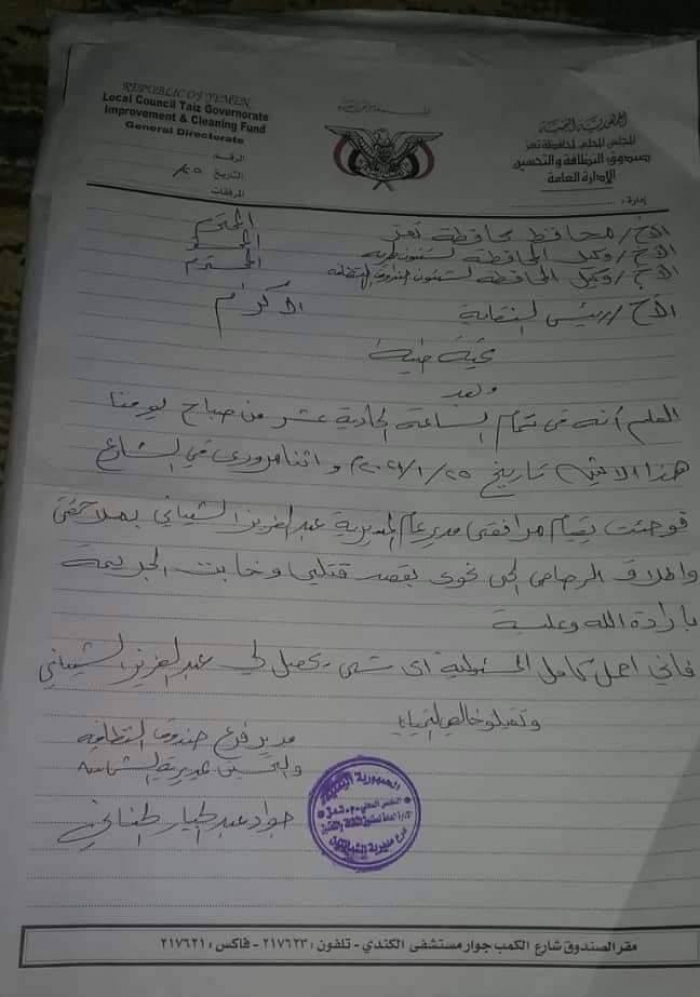 REPUBLIC OF YEMEN
Local Council Taiz Governorate
Improvement & Cleaning Fund
General Directorate
الرقم:
التاريخ
المرفقات
الجمهورية اليمنية
المجلس المحلي لمحافظة تعز
صندوق النظافة والتحسين
الإدارة العامة
إدارة:
الأخ / محافظ محافظة تعز المحترم
الأخ / وكيل المحافظة لشئون المحترم
الأخ / وكيل المحافظة لشئون صندوق النظافة المحترم
الأخ / رئيس النقابة الأكرم
تحية طيبة
وبعد
العلم أنه في تمام الساعة الحادية عشر من صباح يومنا
هذا الاثنين تاريخ ٢٠٢١/١/٢٥م واثناء مروري في الشارع
فوجئت بقيام مرافقي مدير عام المديرية عبدالعزيز الشيباني بملاحقتي
واطلاق الرصاص الحي نحوي بقصد قتلي وخابت الجريمة
بإرادة الله وعليه
فاني احمل كامل المسئولية أي شيء يحصل لي عبدالعزيز الشيباني
وتقبلو خالص التحيات
مدير فرع صندوق النظافة
والتحسين بمديرية
جواد عبدالجبار
الجمهورية اليمنية
مقر الصندوق شارع الكمب جوار مستشفى الكندي - تلفون: ٢١٧٦٢٣ - فاكس: ٢١٧٦٢١